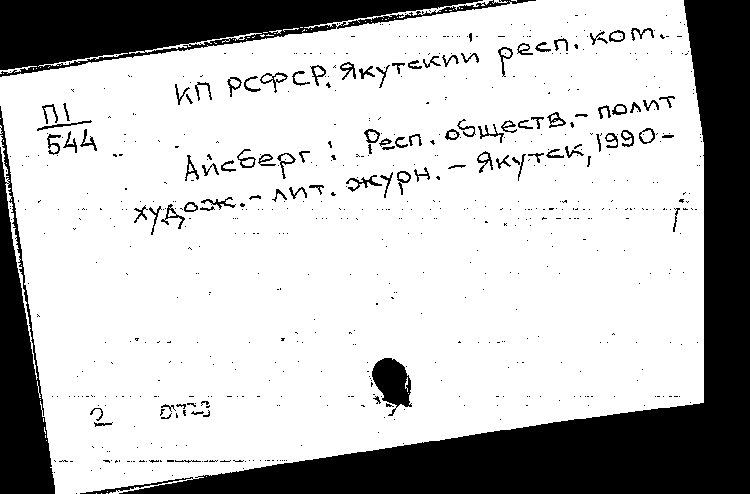 КП РСФСР. Якутский респ. ком.
П1
544
Айсберг : Респ. обществ.- полит
худож.- лит. журн. - Якутск, 1990-
2